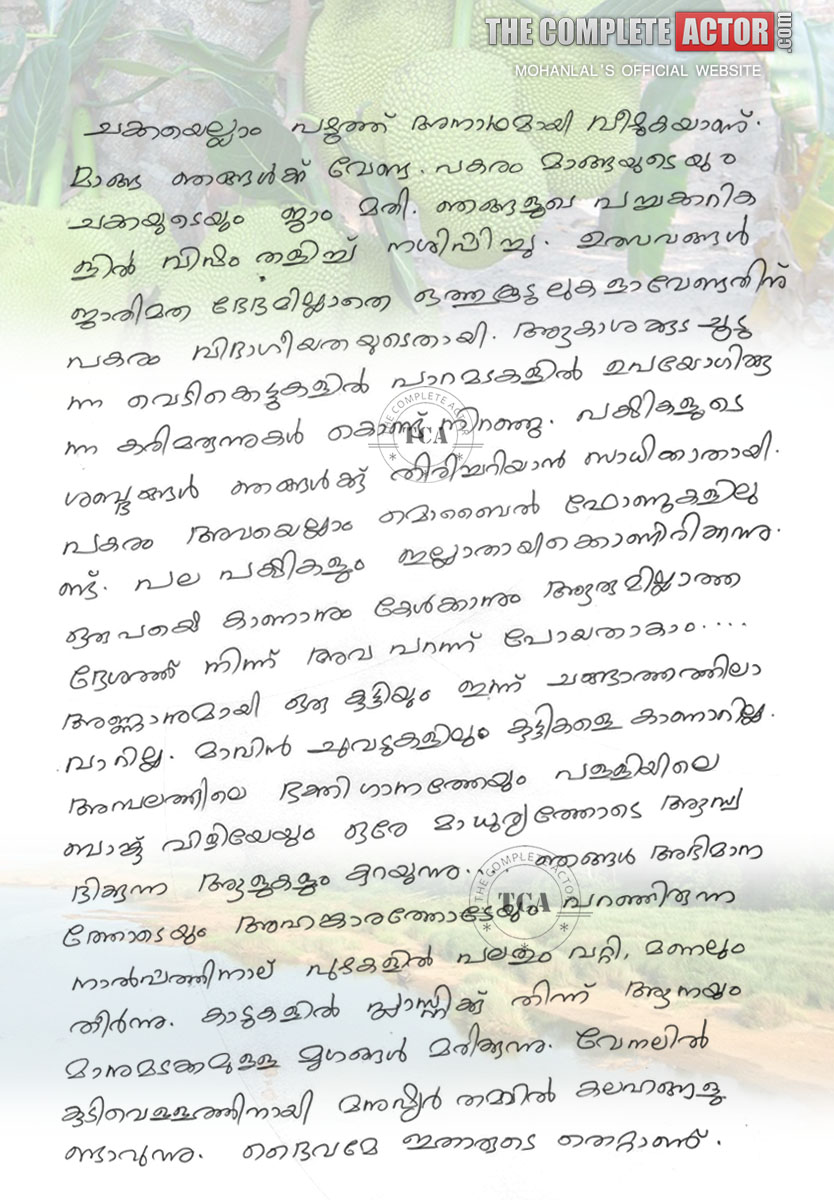 THE COMPLETE ACTOR.com
MOHANLAL'S OFFICIAL WEBSITE
ചക്കയെല്ലാം പഴുത്ത് അനാഥമായി വീഴുകയാണ്.
മാങ്ങ ഞങ്ങൾക്ക് വേണ്ട. പകരം മാങ്ങയുടെയും
ചക്കയുടെയും ജാം മതി. ഞങ്ങളുടെ പച്ചക്കറിക
ളിൽ വിഷം തളിച്ച് നശിപ്പിച്ചു. ഉത്സവങ്ങൾ
ജാതിമത ഭേദമില്ലാതെ ഒത്തുകൂടലുകളാവേണ്ടതിന്
പകരം വിഭാഗീയതയുടെതായി. ആകാശക്കുട ചൂടു
ന്ന വെടിക്കെട്ടുകളിൽ പാറമടകളിൽ ഉപയോഗിക്കു
ന്ന കരിമരുന്നുകൾ കൊണ്ട് നിറഞ്ഞു. പക്ഷികളുടെ
ശബ്ദങ്ങൾ ഞങ്ങൾക്ക് തിരിച്ചറിയാൻ സാധിക്കാതായി.
പകരം അവയെല്ലാം മൊബൈൽ ഫോണുകളിലു
ണ്ട്. പല പക്ഷികളും ഇല്ലാതായിക്കൊണ്ടിരിക്കുന്നു.
ഒരുപക്ഷെ കാണാനും കേൾക്കാനും ആരുമില്ലാത്ത
ദേശത്ത് നിന്ന് അവ പറന്ന് പോയതാകാം....
അണ്ണാനുമായി ഒരു കുട്ടിയും ഇന്ന് ചങ്ങാത്തത്തിലാ
വാറില്ല. മാവിൻ ചുവടുകളിലും കുട്ടികളെ കാണാറില്ല.
അമ്പലത്തിലെ ഭക്തിഗാനത്തേയും പള്ളിയിലെ
ബാങ്ക് വിളിയേയും ഒരേ മാധുര്യത്തോടെ ആസ്വ
ദിക്കുന്ന ആളുകളും കുറയുന്നു... ഞങ്ങൾ അഭിമാന
ത്തോടെയും അഹങ്കാരത്തോടേയും പറഞ്ഞിരുന്ന
നാൽപ്പത്തിനാല് പുഴകളിൽ പലതും വറ്റി, മണലും
തീർന്നു. കാടുകളിൽ പ്ലാസ്റ്റിക്ക് തിന്ന് ആനയും
മാനുമടക്കമുള്ള മൃഗങ്ങൾ മരിക്കുന്നു. വേനലിൽ
കുടിവെള്ളത്തിനായി മനുഷ്യർ തമ്മിൽ കലഹങ്ങളു
ണ്ടാവുന്നു. ദൈവമേ ഇതാരുടെ തെറ്റാണ്.
THE COMPLETE ACTOR
TCA
THE COMPLETE ACTOR
TCA